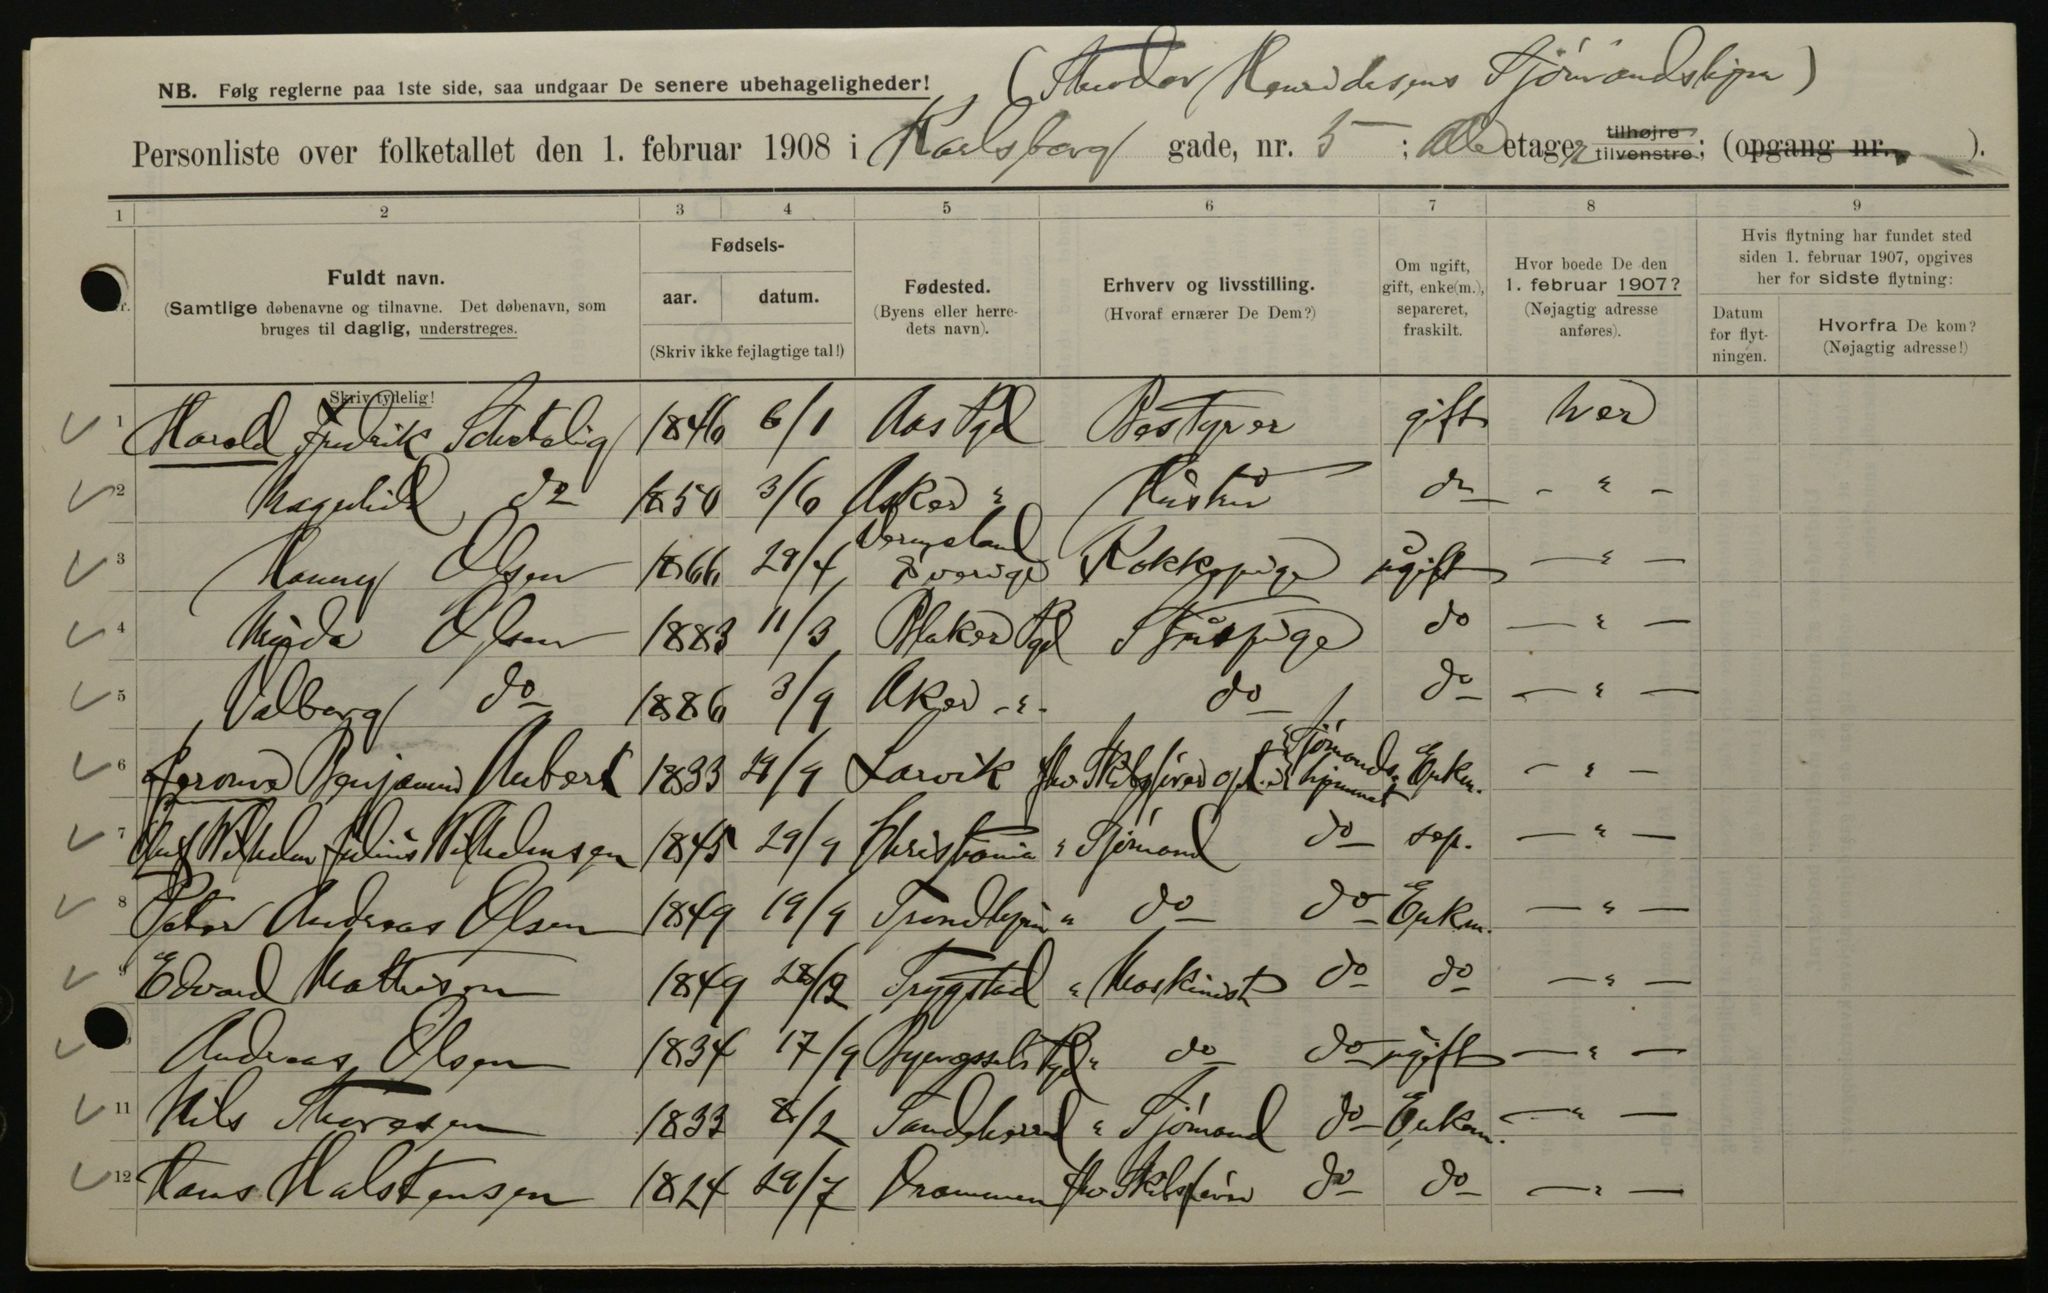 (Theodor Henrichsens Sjømandshjem)
NB. Følg reglerne paa 1ste side, saa undgaar De senere ubehageligheder!
Personliste over folketallet den 1. februar 1908 i Karlsborg gade, nr. 5 ; alle etager tilhøjre tilvenstre; (opgang nr. ).
1 2 3 4 5 6 7 8 9
Fuldt navn.
(Samtlige døbenavne og tilnavne. Det døbenavn, som
bruges til daglig, understreges.
Skriv tydelig!
Fødsels-
aar. datum.
(Skriv ikke fejlagtige tal!)
Fødested.
(Byens eller herre-
dets navn).
Erhverv og livsstilling.
(Hvoraf ernærer De Dem?)
Om ugift,
gift, enke(m.),
separeret,
fraskilt.
Hvor boede De den
1. februar 1907?
(Nøjagtig adresse
anføres).
Hvis flytning har fundet sted
siden 1. februar 1907, opgives
her for sidste flytning:
Datum
for flyt-
ningen.
Hvorfra De kom?
(Nøjagtig adresse!)
1 Harald Fredrik Schetelig 1846 6/1 Aas Pgd Bestyrer gift her
2 Magnhild do 1850 3/6 Asker " Hustru do - " -
3 Hanny Olsen 1866 29/4 Vermeland Sverige Kokkepige ugift — " —
4 Olsen 1883 11/3 Blaker Pgd Stuepige do — " —
5 Valborg do 1886 3/9 Aker - " - do do — " —
6 Benjamin Aubert 1833 29/9 Larvik fhv Skibsfører Sjømands- hjemmet Enkem. - " -
7 Wilhelm Julius Wilhelmsen 1845 29/9 Christiania " Sjømand do sep. — " —
8 Peter Andreas Olsen 1849 19/9 Trondhjem " do do Enkem. — " —
9 Edvard Mathisen 1849 28/12 Trygstad " Maskinist do do — " —
Andreas Olsen 1834 17/9 Pgd " do do ugift — " —
11 Nils Thoresen 1833 8/2 Sandeherred " Sjømand do Enkem. — " —
12 Hans Halstensen 1824 29/7 Drammen fhv Skibsfører do do — " —